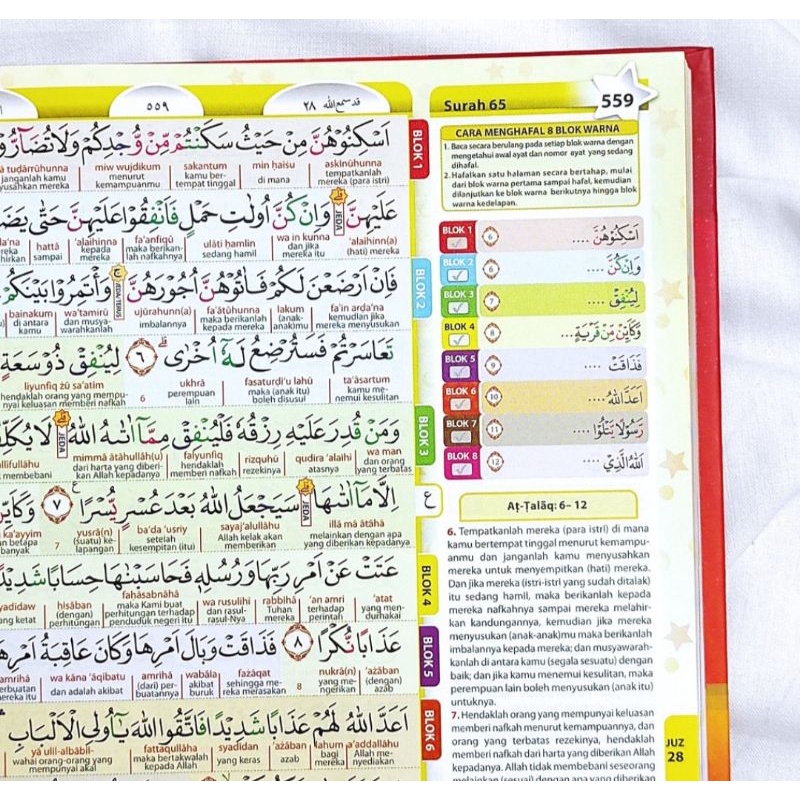 ٥٥٩
قد سمع الله ٢٨
Surah 65
559
اَسْكِنُوْهُنَّ مِنْ حَيْثُ سَكَنْتُمْ مِّنْ وُّجْدِكُمْ وَلَا تُضَاۤرُّوْ
askinūhunna
tempatkanlah
mereka (para istri)
min ḥaiṡu
di mana
sakantum
kamu ber-
tempat tinggal
miw wujdikum
menurut
kemampuanmu
ā tuḍārrūhunna
janganlah kamu
yusahkan mereka
BLOK 1
عَلَيْهِنَّۗ وَاِنْ كُنَّ اُولٰتِ حَمْلٍ فَاَنْفِقُوْا عَلَيْهِنَّ حَتّٰى يَضَ
JEDA
'alaihinn(a)
(hati) mereka
wa in kunna
dan jika
mereka itu
ulāti ḥamlin
sedang hamil
fa'anfiqū
maka berikan-
lah nafkahnya
'alaihinna
kepada
mereka
ḥattā
sampai
فَاِنْ اَرْضَعْنَ لَكُمْ فَاٰتُوْهُنَّ اُجُوْرَهُنَّۚ وَأْتَمِرُوْا بَيْنَكُمْ
JEDA/TERUS
fa'in arḍa'na
kemudian jika
mereka menyusukan
lakum
(anak-
anak)mu
fa'ātūhunna
maka berikanlah
kepada mereka
ujūrahunn(a)
imbalannya
wa'tamirū
dan musya-
warahkanlah
bainakum
di antara
kamu
BLOK 2
تَعَاسَرْتُمْ فَسَتُرْضِعُ لَهٗٓ اُخْرٰى ۝٦ لِيُنْفِقْ ذُوْ سَعَةٍ
ta'āsartum
kamu me-
nemui kesulitan
fasaturḍi'u lahū
maka (anak itu)
boleh disusui
ukhrā
perempuan
lain
6
liyunfiq żū sa'atim
hendaklah orang yang mempu-
nyai keluasan memberi nafkah
وَمَنْ قُدِرَ عَلَيْهِ رِزْقُهٗ فَلْيُنْفِقْ مِمَّآ اٰتٰىهُ اللّٰهُۗ لَا يُكَلِّ
JEDA
wa man
dan orang
yang terbatas
qudira 'alaihi
atasnya
rizquhū
rezekinya
falyunfiq
hendaklah
memberi nafkah
mimmā ātāhullāh(u)
dari harta yang diberi-
kan Allah kepadanya
BLOK 3
اِلَّا مَآ اٰتٰىهَاۗ سَيَجْعَلُ اللّٰهُ بَعْدَ عُسْرٍ يُّسْرًا ۝٧ وَكَاَيِّنْ
ع
JEDA
illā mā ātāhā
melainkan dengan apa
yang diberikan kepadanya
sayaj'alullāhu
Allah kelak akan
memberikan
ba'da 'usriy
setelah
kesempitan (itu)
yusrā(n)
(suatu) ke-
lapangan
7
ع
عَتَتْ عَنْ اَمْرِ رَبِّهَا وَرُسُلِهٖ فَحَاسَبْنٰهَا حِسَابًا شَدِيْدً
'atat
yang men-
durhakai
'an amri
terhadap
perintah
rabbihā
Tuhan
mereka
wa rusulihī
dan rasul-
rasul-Nya
faḥāsabnāhā
maka Kami buat
perhitungan terhadap
penduduk negeri itu
ḥisāban
(dengan)
perhitungan
BLOK 4
عَذَابًا نُّكْرًا ۝٨ فَذَاقَتْ وَبَالَ اَمْرِهَا وَكَانَ عَاقِبَةُ اَمْرِهَ
'ażāban
(dengan)
azab
nukrā(n)
yang me-
ngerikan
8
fażāqat
sehingga me-
reka merasakan
wabāla
akibat
buruk
amrihā
(dari) per-
buatannya
wa kāna 'āqibatu
dan adalah akibat
BLOK 5
اَعَدَّ اللّٰهُ لَهُمْ عَذَابًا شَدِيْدًا فَاتَّقُوا اللّٰهَ يٰٓاُولِى الْاَلْبَابِ
a'addallāhu
Allah me-
nyediakan
lahum
bagi
mereka
'ażāban
azab
syadīdan
yang keras
fattaqullāha
maka bertakwalah
kepada Allah
yā ulil-albābil-
wahai orang-orang yang
mempunyai akal
BLOK 6
CARA MENGHAFAL 8 BLOK WARNA
1. Baca secara berulang pada setiap blok warna dengan
mengetahui awal ayat dan nomor ayat yang sedang
dihafal.
2. Hafalkan satu halaman secara bertahap, mulai
dari blok warna pertama sampai hafal, kemudian
dilanjutkan ke blok warna berikutnya hingga blok
warna kedelapan.
BLOK 1 6 اَسْكِنُوْهُنَّ ....
BLOK 2 6 وَاِنْ كُنَّ ....
BLOK 3 7 لِيُنْفِقْ ....
BLOK 4 8 وَكَاَيِّنْ مِّنْ قَرْيَةٍ...
BLOK 5 9 فَذَاقَتْ ....
BLOK 6 10 اَعَدَّ اللّٰهُ ....
BLOK 7 11 رَسُوْلًا يَّتْلُوْا ....
BLOK 8 12 اَللّٰهُ الَّذِيْ ....
Aṭ-Ṭalāq: 6– 12
6. Tempatkanlah mereka (para istri) di mana
kamu bertempat tinggal menurut kemampu-
anmu dan janganlah kamu menyusahkan
mereka untuk menyempitkan (hati) mereka.
Dan jika mereka (istri-istri yang sudah ditalak)
itu sedang hamil, maka berikanlah kepada
mereka nafkahnya sampai mereka melahir-
kan kandungannya, kemudian jika mereka
menyusukan (anak-anak)mu maka berikanlah
imbalannya kepada mereka; dan musyawarah-
kanlah di antara kamu (segala sesuatu) dengan
baik; dan jika kamu menemui kesulitan, maka
perempuan lain boleh menyusukan (anak itu)
untuknya.
7. Hendaklah orang yang mempunyai keluasan
memberi nafkah menurut kemampuannya, dan
orang yang terbatas rezekinya, hendaklah
memberi nafkah dari harta yang diberikan Allah
kepadanya. Allah tidak membebani seseorang
melainkan (sesuai) dengan apa yang diberikan
JUZ
28